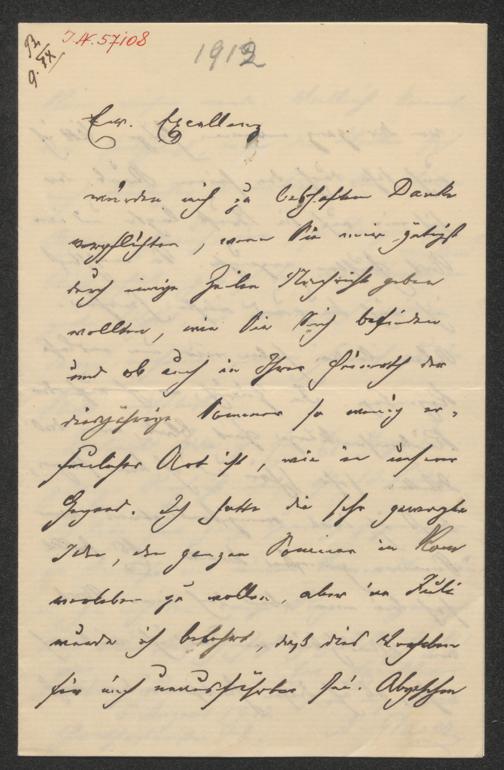 I.N. 57108
1912
Ew. Excellenz
würden mich zu lebhaftem Danke
verpflichten, wenn Sie mir gütigst
durch einige Zeilen Nachricht geben
wollten, wie Sie Sich befinden
und ob auch in Ihrer Heimath der
diesjährige Sommer so wenig er-
freulicher Art ist, wie in unserer
Gegend. Ich hatte die sehr gewagte
Idee, den ganzen Sommer in Rom
verleben zu wollen, aber im Juli
wurde ich belehrt, daß dies Vorhaben
für mich unausführbar sei. Abgesehen